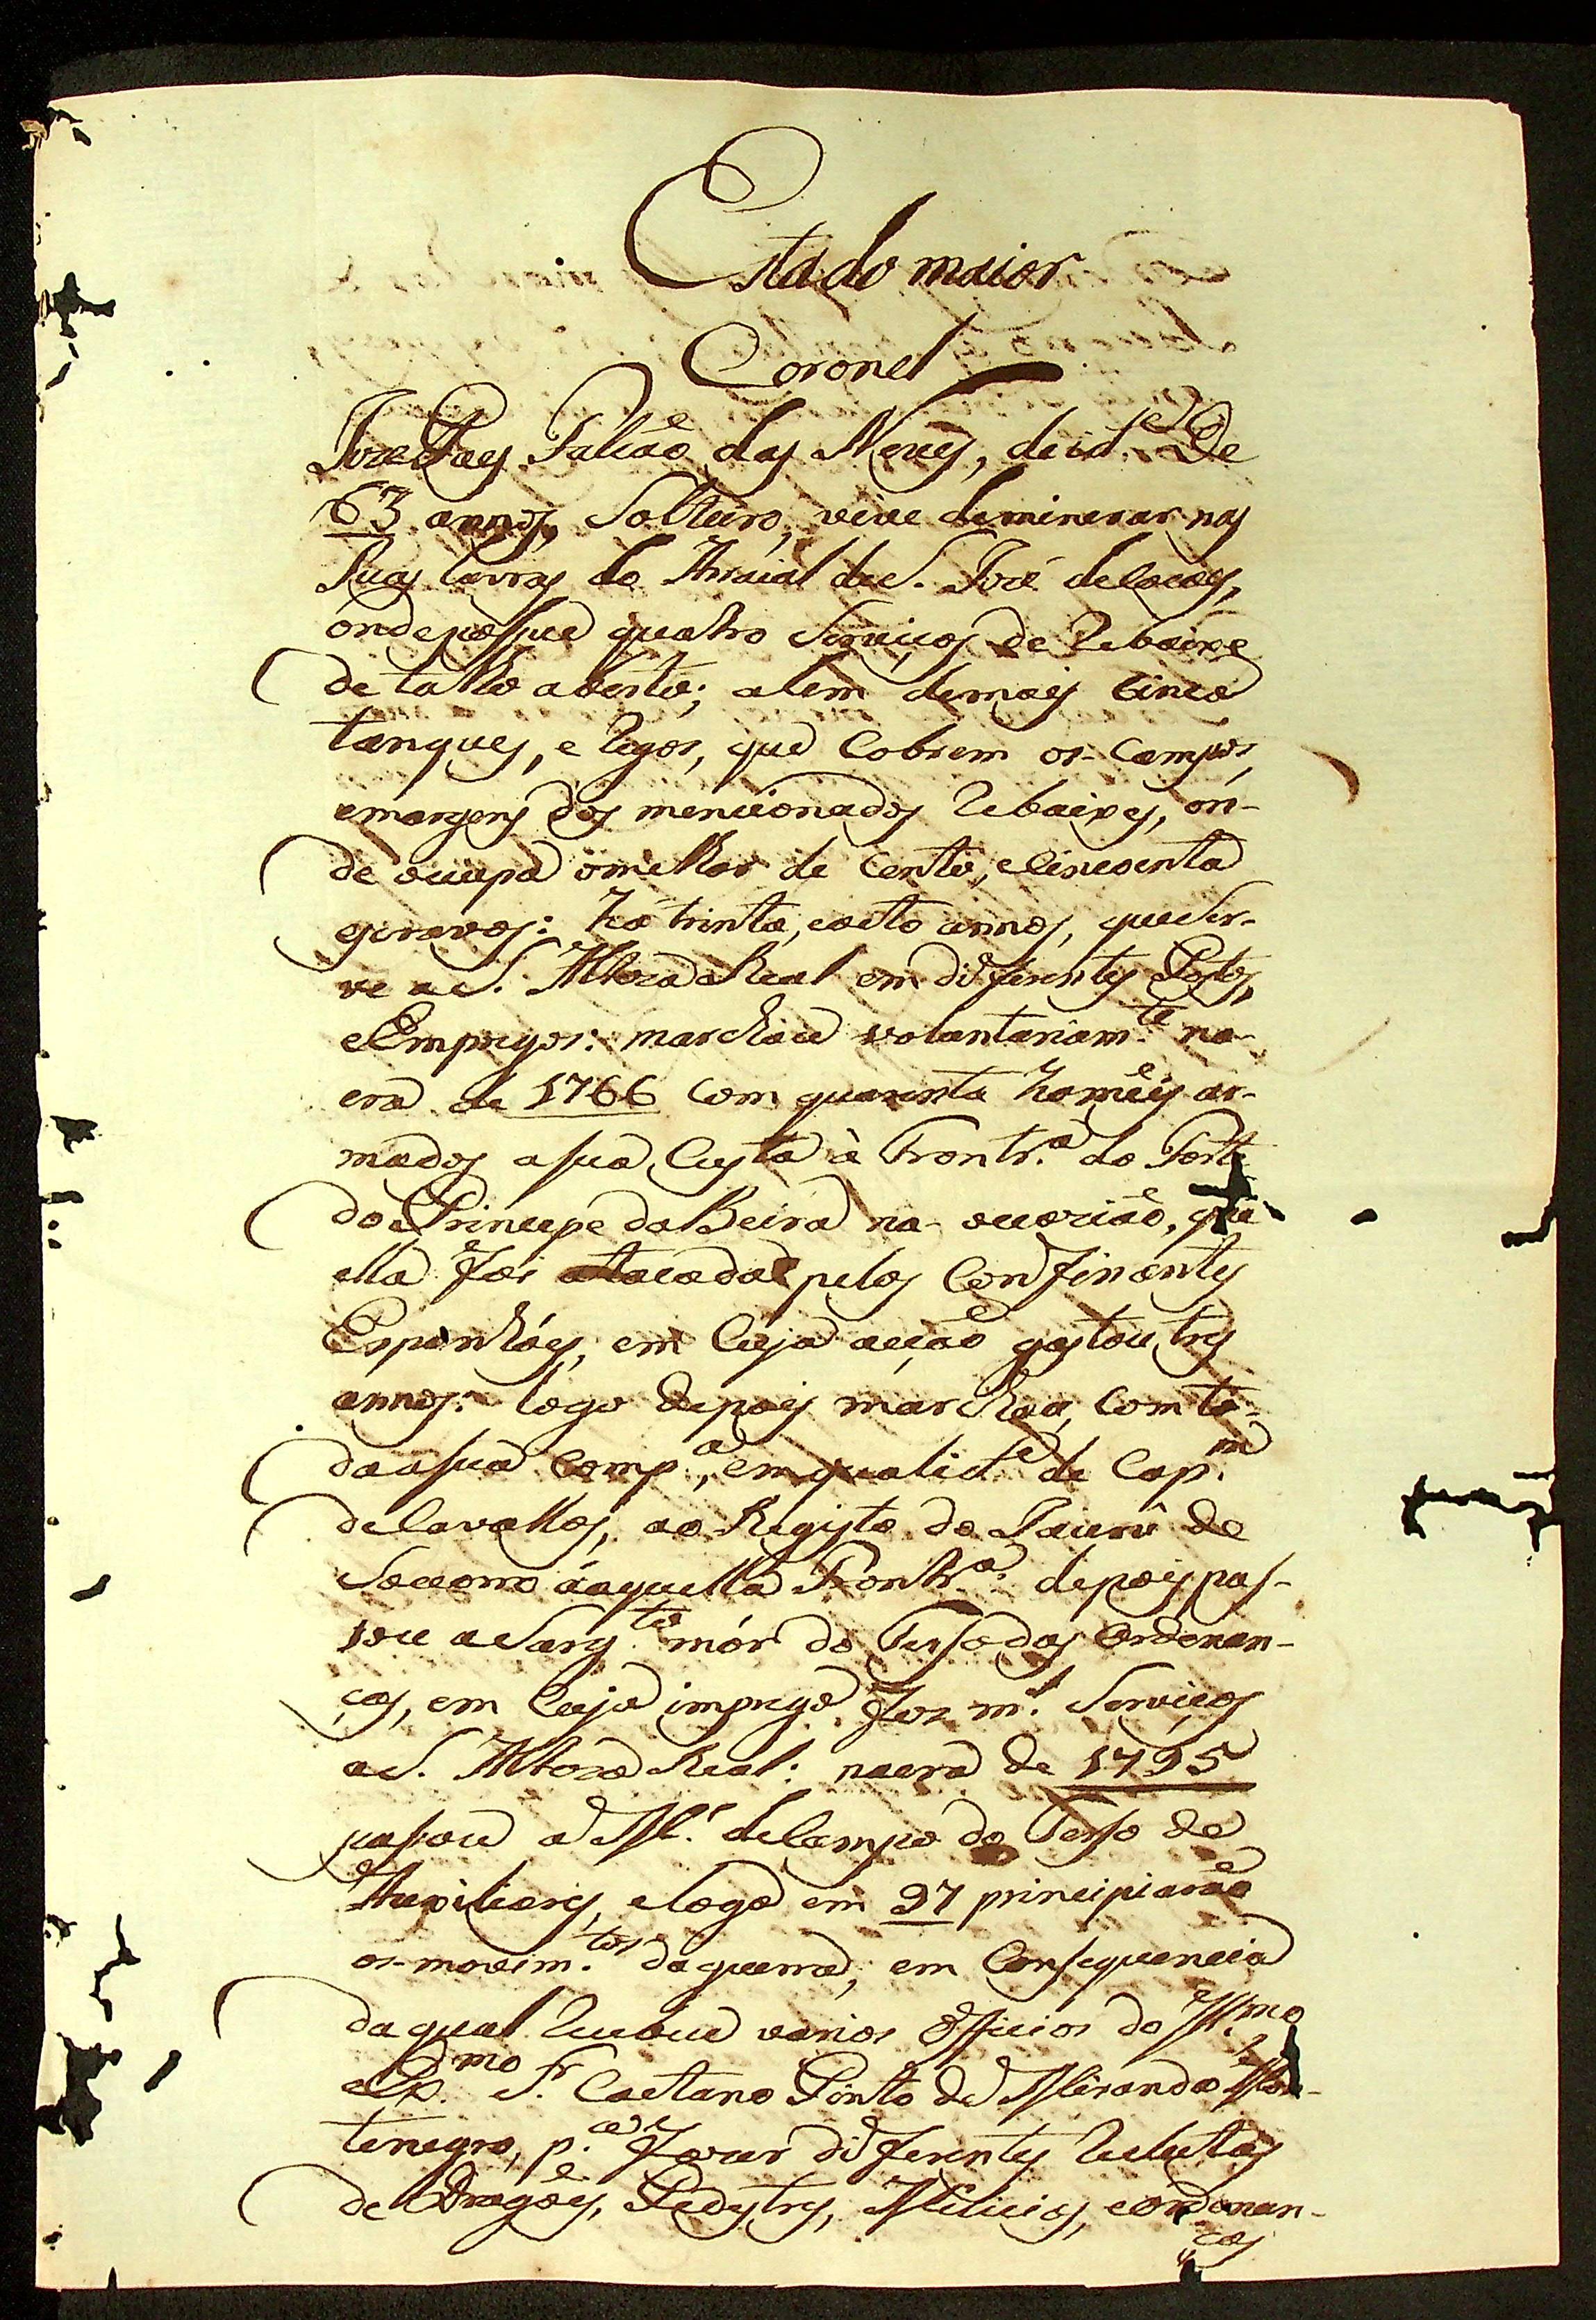 Estado maior
Coronel
Joze Paes Falcaõ das Neves, de id.e De
63 annos, Solteiro, vive de minerar nas
Suas Lavras do Arraial de S. Jozé de Cocaes,
onde possue quatro Serviços de Rebaixe
de talho aberto; alem de mais Cinco
tanques, e Regos, que Cobrem os Campos,
e margens dos mencionados Rebaixes, on-
de ocupa o melhor de Cento, e Sincoenta
escravos: há trinta, e oito annos, que Ser-
ve a S. Alteza Real em differentes Postos,
e Empregos: marchou voluntariam.te na
era de 1766 Com quarenta homẽis ar-
mados a sua Custa á Frontr.a do Forte
do Principe da Beira na ocoziaõ, que
ella foi atacada pelos Confinantes
Espanhóes, em Cuja acçaõ gastou tres
annos: logo depois marchou, Com to-
da a sua Comp.a, em qualid.e de Cap.m
de Cavallos, ao Registo do Jaurú de
Socorro áquella Frontr.a: depois pas-
sou a Sarg.to mór do Terso das Ordenan-
ças, em Cujo imprego fez m.tos Serviços
a S. Alteza Real: na era de 1795
passou a M.e de Campo do Terso de
Auxiliares, e logo em 97 principiaraõ
os movim.tos da guerra, em Consequencia
da qual Recebeu varios Officios do Ill.mo
e Ex.mo S.r Caetano Pinto de Miranda Mon-
tenegro, p.a fazer differentes Reclutas
de Dragões, Pedestres, Milicias, e ordenan-
ças